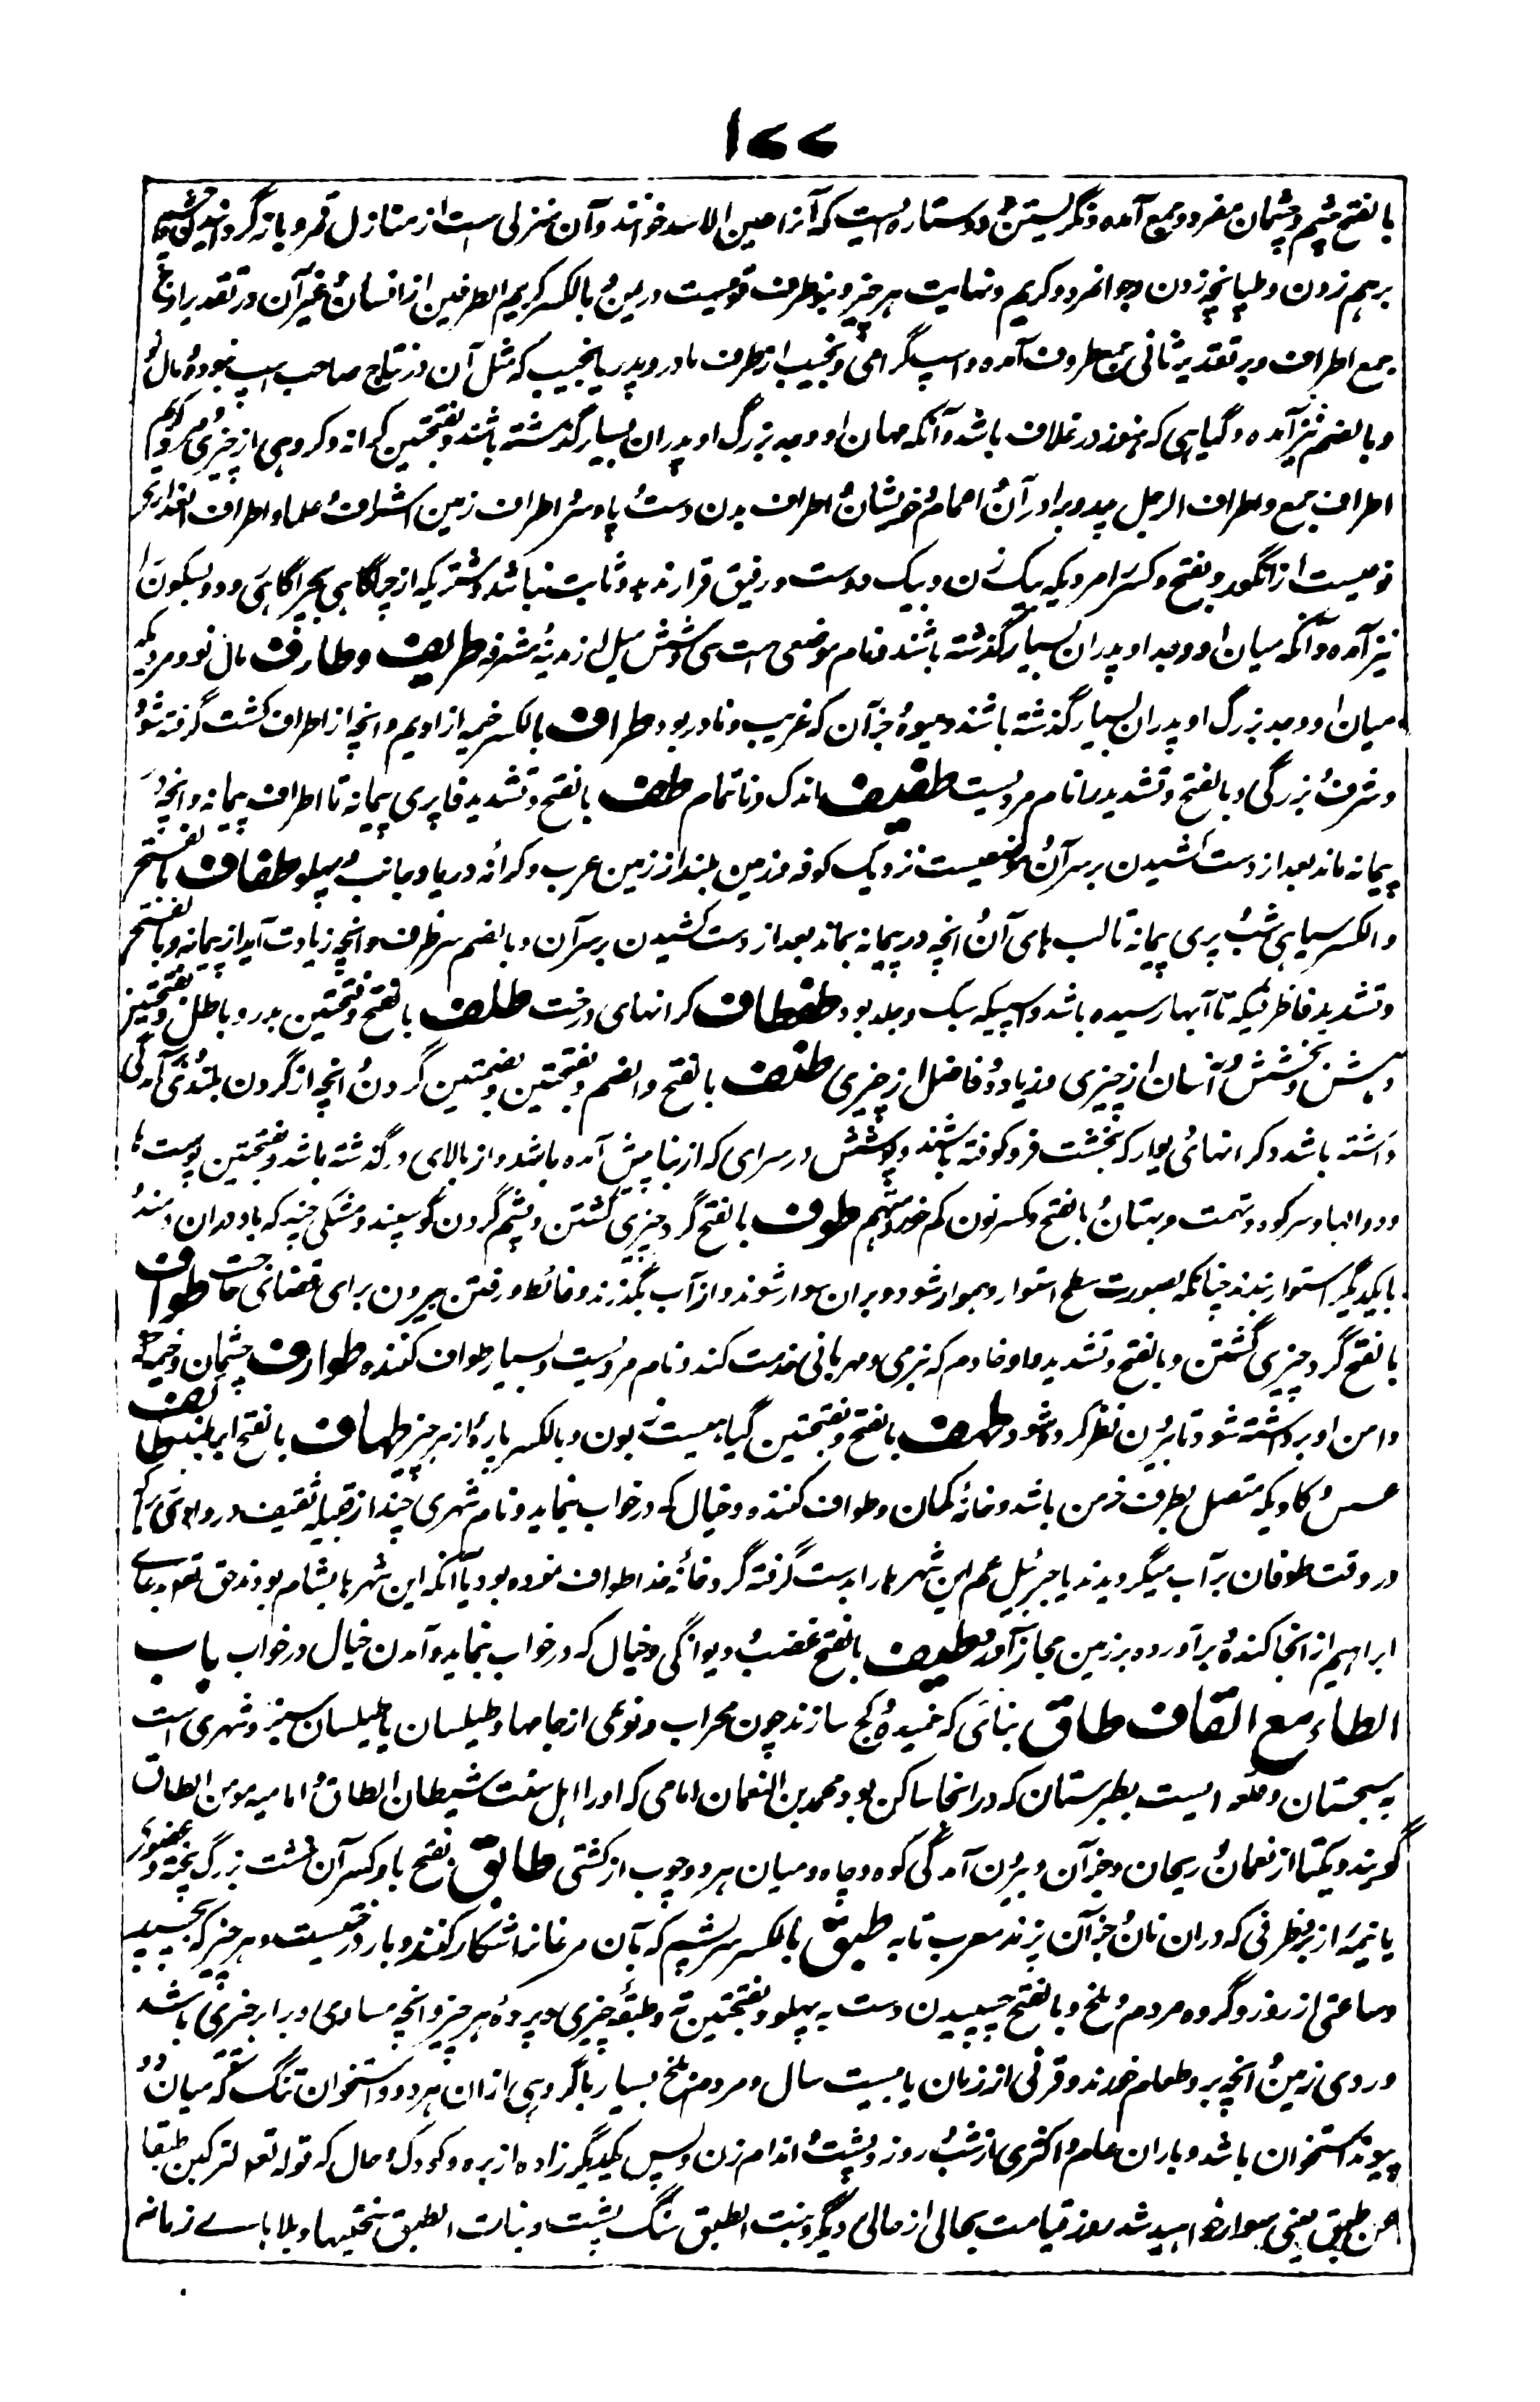 ۱۷۷
بالفتح چشم و چشمان مفرد و جمع آمده و نگریستن و دو ستاره است که آنرا عین الاسد خوانند و آن منزلی است از منازل قمر و بازگردانیدن چشم
برهم زدن و طپانچه زدن و جوانمرد و کریم و نهایت هر چیز و نوطرف قومیست در یمن و بالکسر کریم الطرفین از انسان و غیر آن و بر تقدیر اول
جمع اطراف و بر تقدیر ثانی جمع طروف آمده و اسپ گرامی و نجیب از طرف مادر و پدر یا نجیب که مثل آن در نتاج صاحب اسپ نبود و مال نو
و بالضم نیز آمده و گیاهی که هنوز در غلاف باشد و آنکه میان او و جد بزرگ او پدران بسیار گذشته باشند و بفتحتین کرانه و گروهی از چیزی و مرد کریم
اطراف جمع و اطراف الرجل پدر و برادرآن و اعمام و خویشان و اطراف بدن دست و پا و سر و اطراف زمین اشراف و علما و اطراف العذاری
نوعیست از انگور و بفتح و کسر را مردیکه بیک زن و بیک دوست و رفیق قرار ندهد و ثابت نباشد و شتریکه از چراگاهی بچراگاهی رود و بسکون را
نیز آمده و آنکه میان او و جد او پدران بسیار گذشته باشند و نام موضعی است سی و شش میل از مدینه مشرفه طریف و طارف مال نو و مردیکه
میان او و جد بزرگ او پدران بسیار گذشته باشند و میوه و جز آن که غریب و نادر بود طراف بالکسر خیمه از ادیم و انچه از اطراف کشت گرفته شود
و شرف و بزرگی و بالفتح و تشدید را نام مردیست طفیف اندک و ناتمام طف بالفتح و تشدید فا پری پیمانه تا اطراف پیمانه و انچه در
پیمانه ماند بعد از دست کشیدن بر سر آن و موضعیست نزدیک کوفه و زمین بلند از زمین عرب و کرانه دریا و جانب و پهلو طفاف بالفتح
والکسر سیاهی شب و پری پیمانه تا لب های آن و انچه در پیمانه بماند بعد از دست کشیدن بر سر آن و بالضم سر ظرف و انچه زیادت آید از پیمانه و بالفتح
و تشدید فا ظرفیکه تا آبها رسیده باشد و اسپیکه سبک و جلد بود طفطاف کرانهای درخت طلف بالفتح و بفتحتین هدر و باطل و بفتحتین
دهش و بخشش و آسان از چیزی و زیاده و فاضل از چیزی طنف بالفتح والضم و بفتحتین و بضمتین گردن و انچه از گردن بلندی و برآمدگی
داشته باشد و کرانهای دیوار که بخشت فرو کوفته باشند و پوشش در سرای که از بنا پیش آمده باشد و از بالای در گذشته باشد و بفتحتین پوست ها
و دوالها و سر کوه و تهمت و بهتان و بالفتح و کسر نون کم خور و متهم طوف بالفتح گرد چیزی گشتن و پشم گردن گوسپند و مشکی چند که باد دران دمند و
بایکدیگر استوار بندند چنانکه بصورت سطح استوار و هموار شود و بران سوار شوند و از آب بگذرند و غائط و رفتن بیرون برای قضای حاجت طواف
بالفتح گرد چیزی گشتن و بالفتح و تشدید واو خادم که بنرمی و مهربانی خدمت کند و نام مردیست و بسیار طواف کننده طوارف چشمان و خیمه که
دامن او برداشته شود تا بیرون نظر کرده شود طهف بالفتح و بفتحتین گیاهیست زبون و بالکسر پارۀ از هر چیز طهاف بالفتح ابر بلند طائف
عسس و گاویکه متصل بطرف خرمن باشد و خانۀ کمان و طواف کننده و خیال که در خواب نیماید و نام شهری چند از قبیله ثقیف در وادی که
در وقت طوفان بر آب میگردیدند یا جبرئیل عم این شهرها را بدست گرفته گرد خانه خدا طواف نموده بود یا آنکه این شهرها بشام بودند حق تعه بدعای
ابراهیم از انجا کنده و برآورده بزمین حجاز آورد طیف بالفتح غضب و دیوانگی و خیال که در خواب نیماید و آمدن خیال در خواب باب
الطاء مع القاف طاق بنائی که خمیده و کج سازند چون محراب و نوعی از جامها و طیلسان یا طیلسان سبز و شهری است
به سجستان و قلعه ایست بطبرستان که در انجا ساکن بود محمد بن النعمان امامی که اورا اهل سنت شیطان الطاق و امامیه مومن الطاق
گویند و یکتا از نعمان و ریحان و جز آن و بیرون آمدگی کوه و چاه و میان هر دو چوب از کشتی طابق بفتح با و کسر آن خشت بزرگ پخته و عضوی
یا نیمۀ از بز و ظرفی که دران نان و جز آن پزند معرب تابه طبق بالکسر سریشم که بآن مرغانرا شکار کنند و بار درختیست و هر چیز که بچسپد
و ساعتی از روز و گروه مردم و ملخ و بالفتح چسپیدن دست به پهلو و بفتحتین ته و طبقۀ چیزی و پردۀ هر چیز و انچه مساوی و برابر چیزی باشد
و روی زمین و انچه برو طعام خورند و قرنی از زمان یا بیست سال و مردم و ملخ بسیار یا گروهی ازان هر دو و استخوان تنگ که میان دو
پیوند استخوان باشد و باران عام و اکثری از شب و روز و پشت و اندام زن و پس یکدیگر زاده از بره و کودک و حال که قوله تعه لترکبن طبقا
عن طبق یعنی سوار خواهید شد روز قیامت بحالی از حالی دیگر و بنت الطبق سنگ پشت و بنات الطبق سختیها و بلاهای زمانه